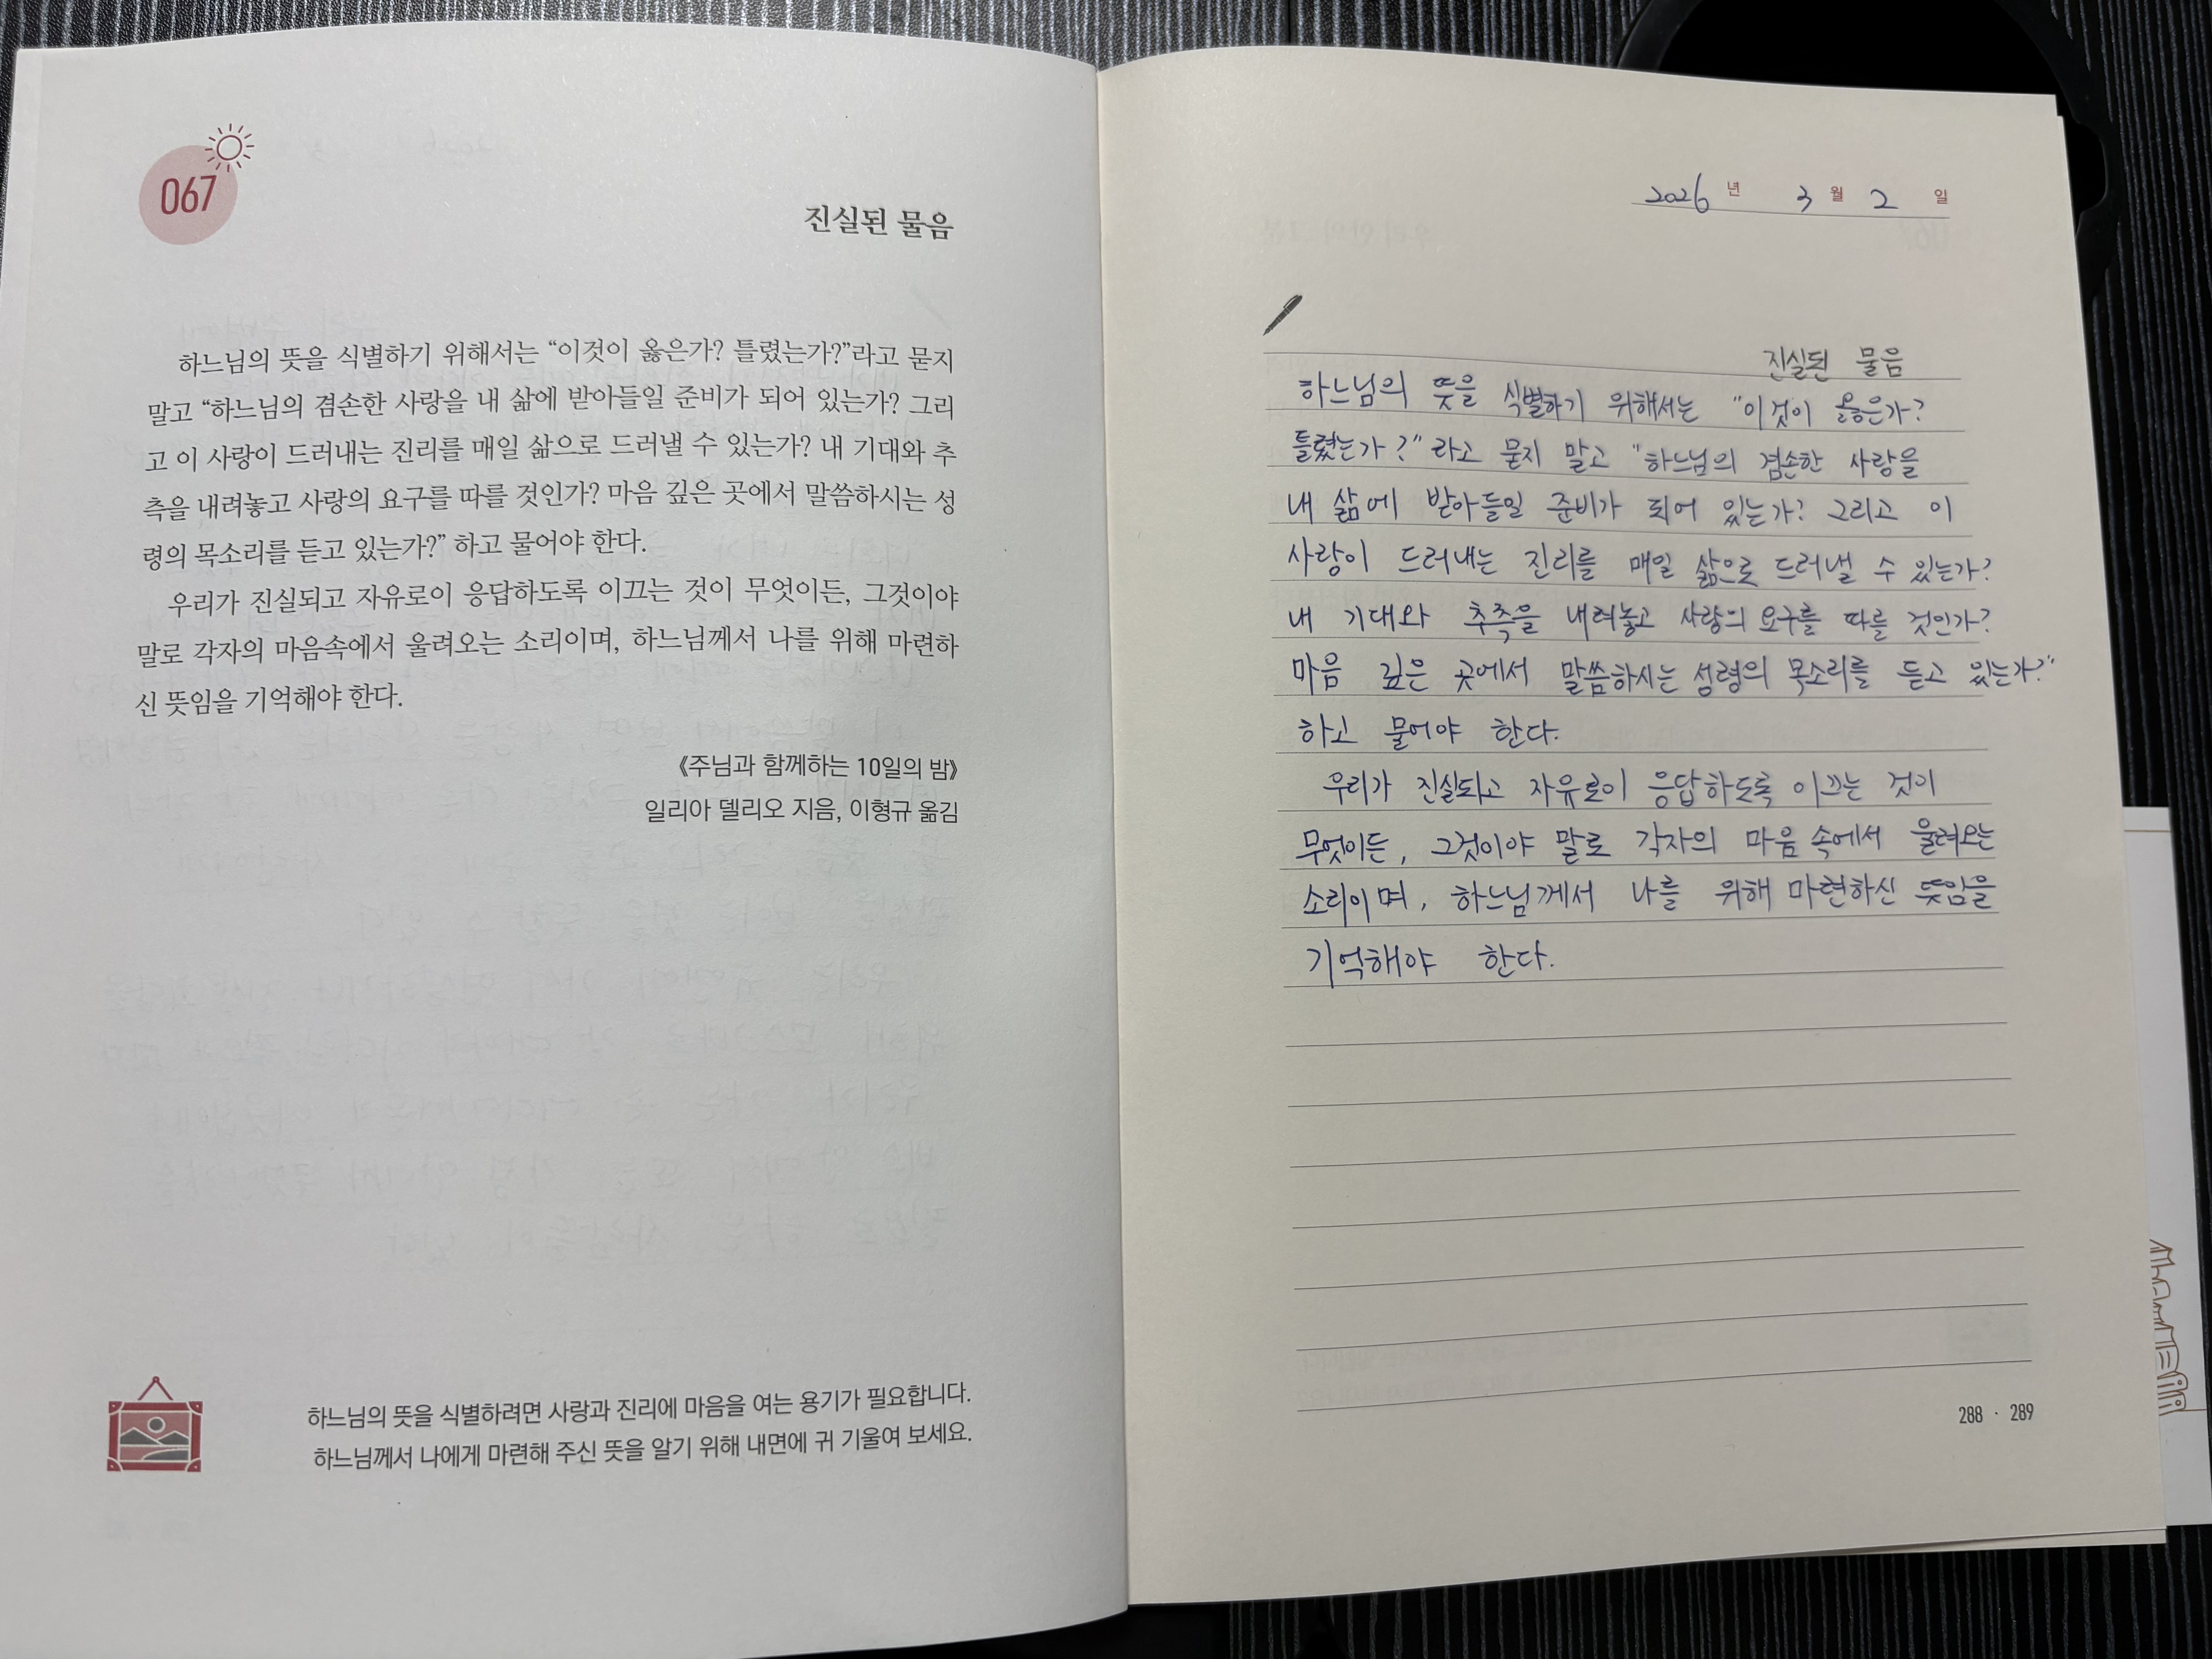 067
진실된 물음
하느님의 뜻을 식별하기 위해서는 “이것이 옳은가? 틀렸는가?”라고 묻지
말고 “하느님의 겸손한 사랑을 내 삶에 받아들일 준비가 되어 있는가? 그리
고 이 사랑이 드러내는 진리를 매일 삶으로 드러낼 수 있는가? 내 기대와 추
측을 내려놓고 사랑의 요구를 따를 것인가? 마음 깊은 곳에서 말씀하시는 성
령의 목소리를 듣고 있는가?” 하고 물어야 한다.
우리가 진실되고 자유로이 응답하도록 이끄는 것이 무엇이든, 그것이야
말로 각자의 마음속에서 울려오는 소리이며, 하느님께서 나를 위해 마련하
신 뜻임을 기억해야 한다.
《주님과 함께하는 10일의 밤》
일리아 델리오 지음, 이형규 옮김
하느님의 뜻을 식별하려면 사랑과 진리에 마음을 여는 용기가 필요합니다.
하느님께서 나에게 마련해 주신 뜻을 알기 위해 내면에 귀 기울여 보세요.
2026 년 3 월 2 일
진실된 물음
하느님의 뜻을 식별하기 위해서는 "이것이 옳은가?
틀렸는가?"라고 묻지 말고 "하느님의 겸손한 사랑을
내 삶에 받아들일 준비가 되어 있는가? 그리고 이
사랑이 드러내는 진리를 매일 삶으로 드러낼 수 있는가?
내 기대와 추측을 내려놓고 사랑의 요구를 따를 것인가?
마음 깊은 곳에서 말씀하시는 성령의 목소리를 듣고 있는가?"
하고 물어야 한다.
우리가 진실되고 자유로이 응답하도록 이끄는 것이
무엇이든, 그것이야 말로 각자의 마음 속에서 울려오는
소리이며, 하느님께서 나를 위해 마련하신 뜻임을
기억해야 한다.
288 · 289